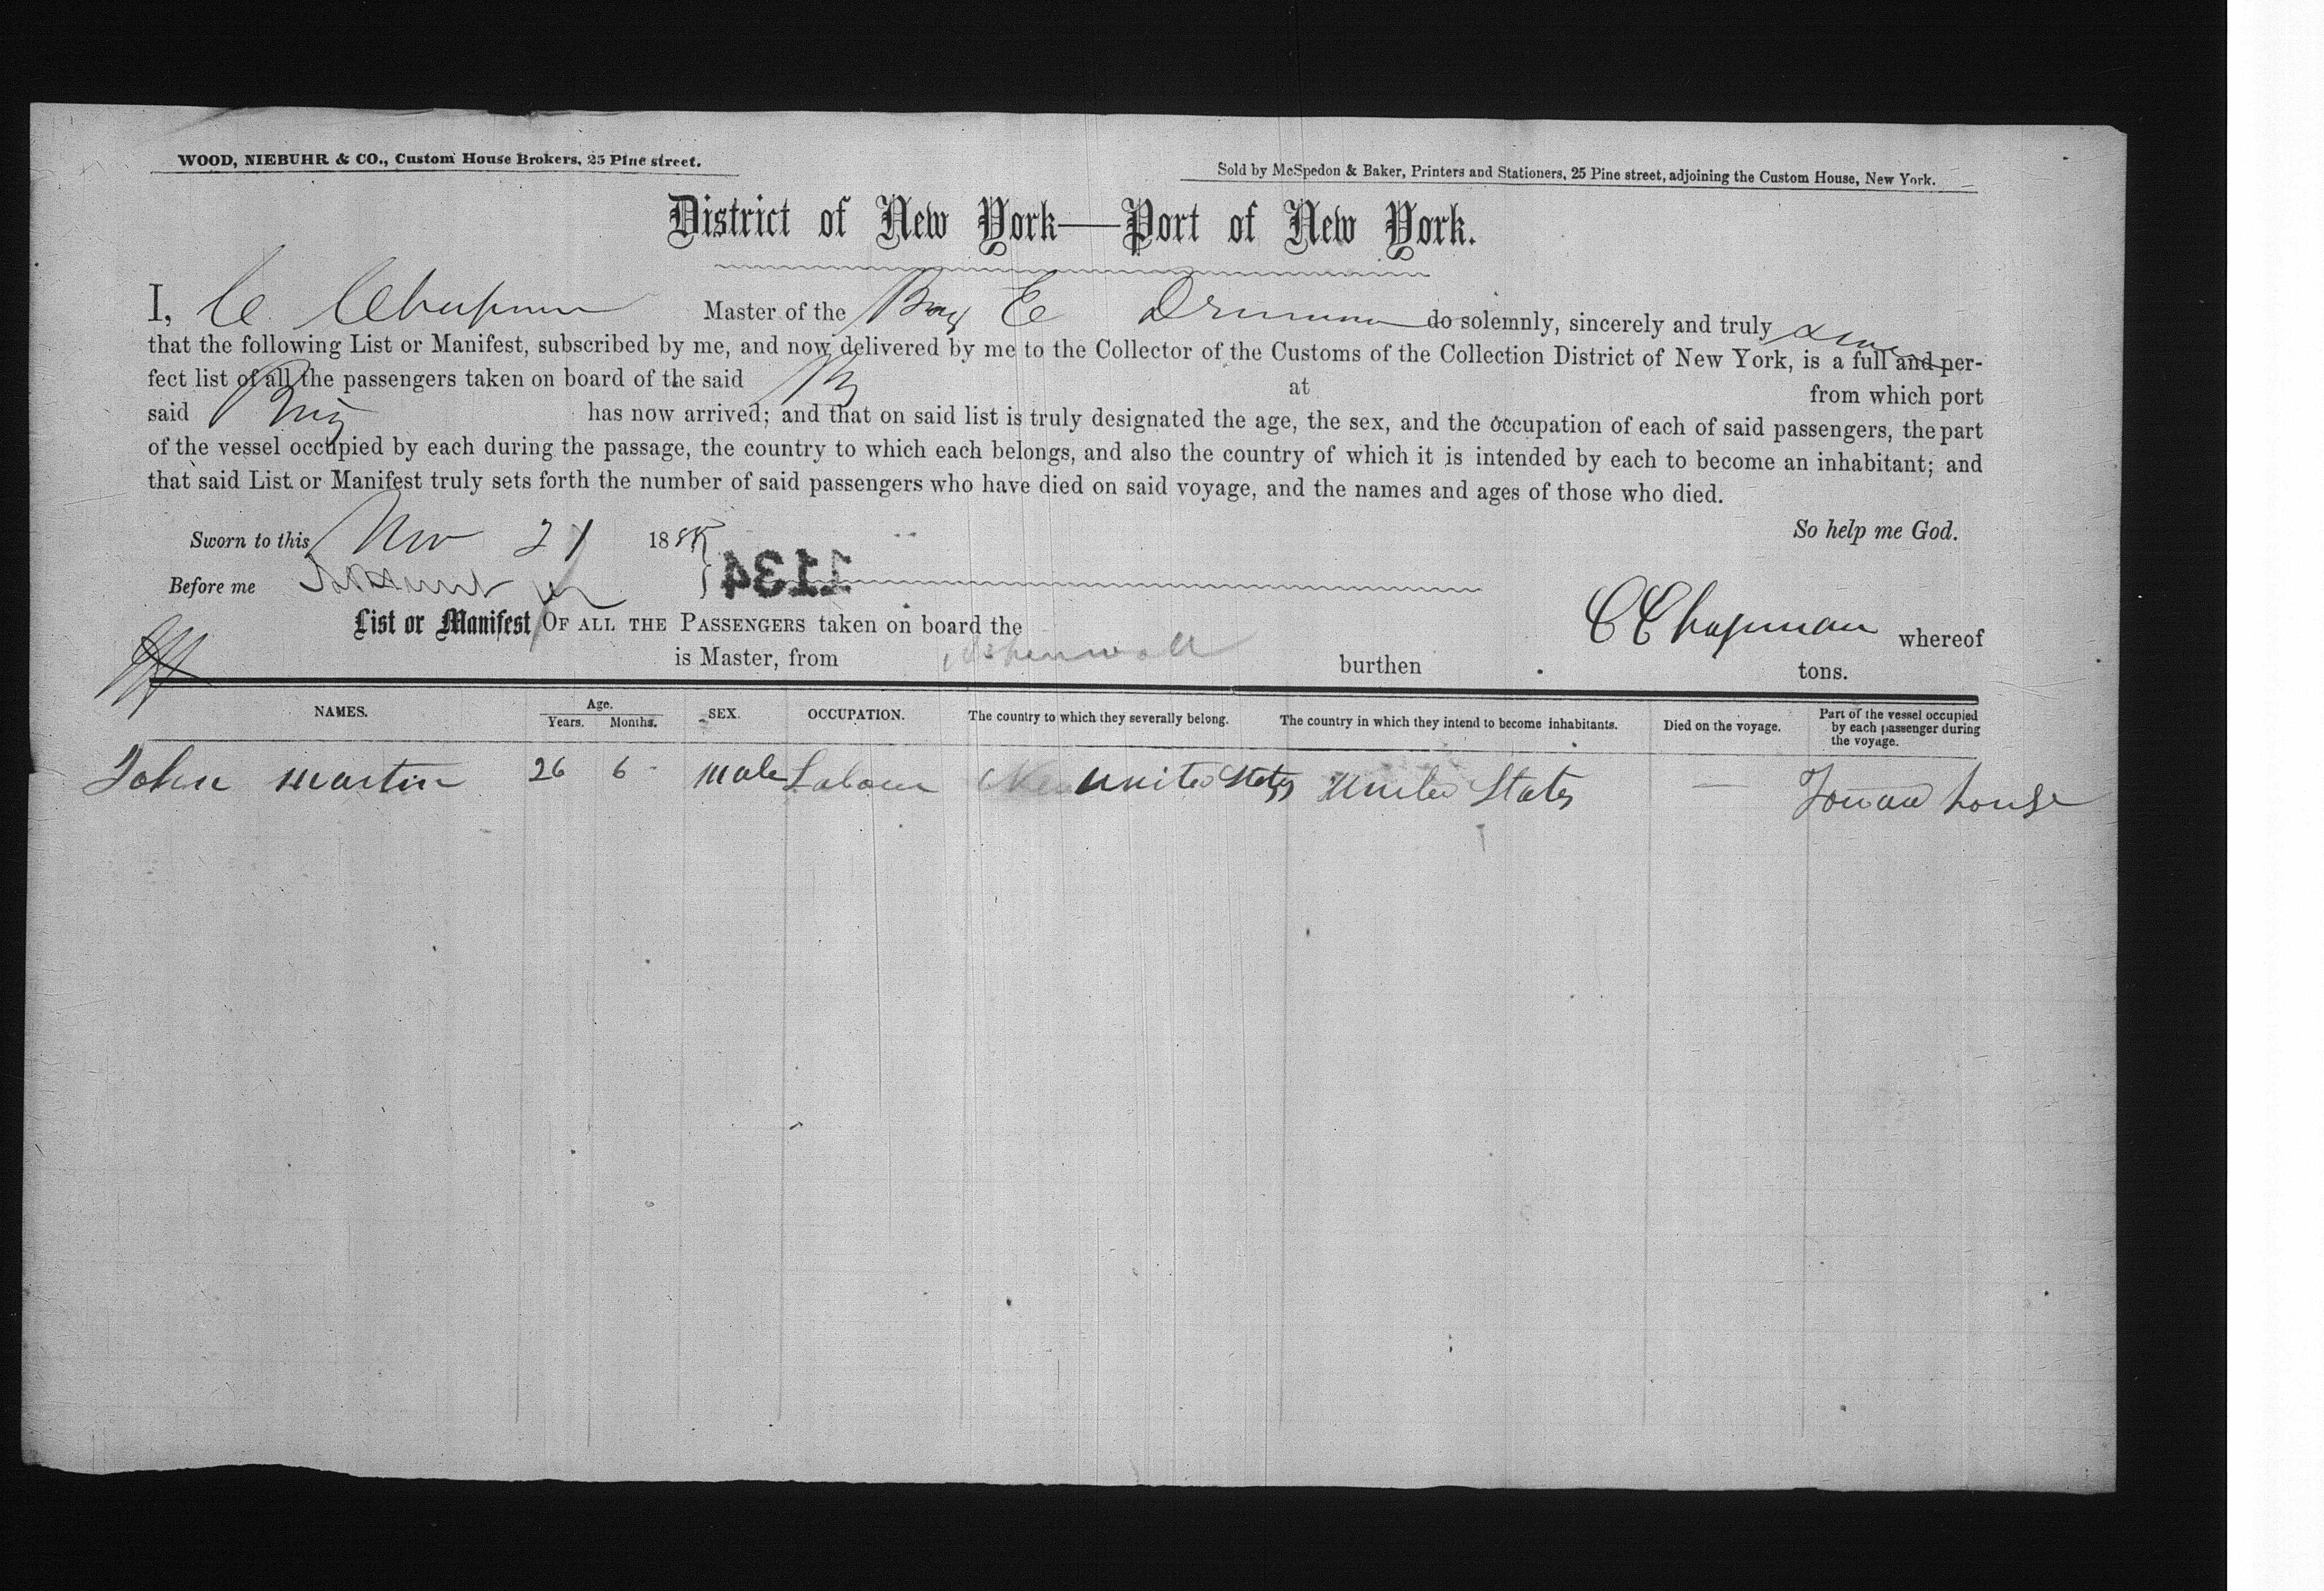 WOOD, NIEBUHR & CO., Custom House Brokers, 25 Pine street.
Sold by McSpedon & Baker, Printers and Stationers, 25 Pine street, adjoining the Custom House, New York.
District of New York—Port of New York.
I, C Chapman Master of the Brig E Drummond do solemnly, sincerely and truly swear
that the following List or Manifest, subscribed by me, and now delivered by me to the Collector of the Customs of the Collection District of New York, is a full and per-
fect list of all the passengers taken on board of the said at from which port
said Brig has now arrived; and that on said list is truly designated the age, the sex, and the occupation of each of said passengers, the part
of the vessel occupied by each during the passage, the country to which each belongs, and also the country of which it is intended by each to become an inhabitant; and
that said List or Manifest truly sets forth the number of said passengers who have died on said voyage, and the names and ages of those who died.
So help me God.
Sworn to this Nov 21 18
1134
Before me
List or Manifest OF ALL THE PASSENGERS taken on board the C Chapman whereof
is Master, from Aspenwall burthen tons.
NAMES. Age. Years. Months. SEX. OCCUPATION. The country to which they severally belong. The country in which they intend to become inhabitants. Died on the voyage. Part of the vessel occupied by each passenger during the voyage.
John Martin 26 6 male Labour United States United States — Forward house